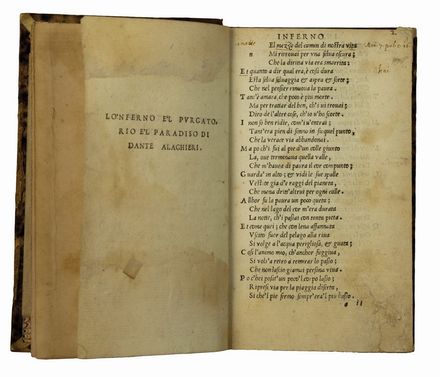 LO'NFERNO E'L PVRGATO
RIO E'L PARADISO DI
DANTE ALAGHIERI.
INFERNO
Nel mezzo del camin di nostra vita
Mi ritrovai per una selva oscura;
Che la diritta via era smarrita:
Et quanto a dir qual era, è cosa dura
Esta selva selvaggia et aspra et forte;
Che nel pensier rinnova la paura.
Tant'è amara, che poco è piu morte.
Ma per trattar del ben, ch'i vi trovai;
Diro de l'altre cose, ch'io v'ho scorte.
I non so ben ridir, com'i v'entrai;
Tant'era pien di sonno in su quel punto,
Che la verace via abbandonai.
Ma po ch'i fui al pie d'un colle giunto
La, ove terminava quella valle,
Che m'havea di paura il cor compunto;
Guarda'in alto; et vidi le sue spalle
Vestite gia d'e raggi del pianeta,
Che mena dritt'altrui per ogni calle.
Allhor fu la paura un poco queta;
Che nel lago del cor m'era durata
La notte, ch'i passai con tanta pieta.
Et come quei; che con lena affannata
Uscito fuor del pelago alla riva
Si volge a l'acqua perigliosa, et guata;
Cosi l'animo mio, ch'anchor fuggiva,
Si volse a retro a rimirar lo passo;
Che non lascio giamai persona viva.
Po c'hei posat'un poco'l corpo lasso;
Ripresi via per la piaggia diserta,
Si che'l pie fermo sempr'era'l piu basso.
a ii